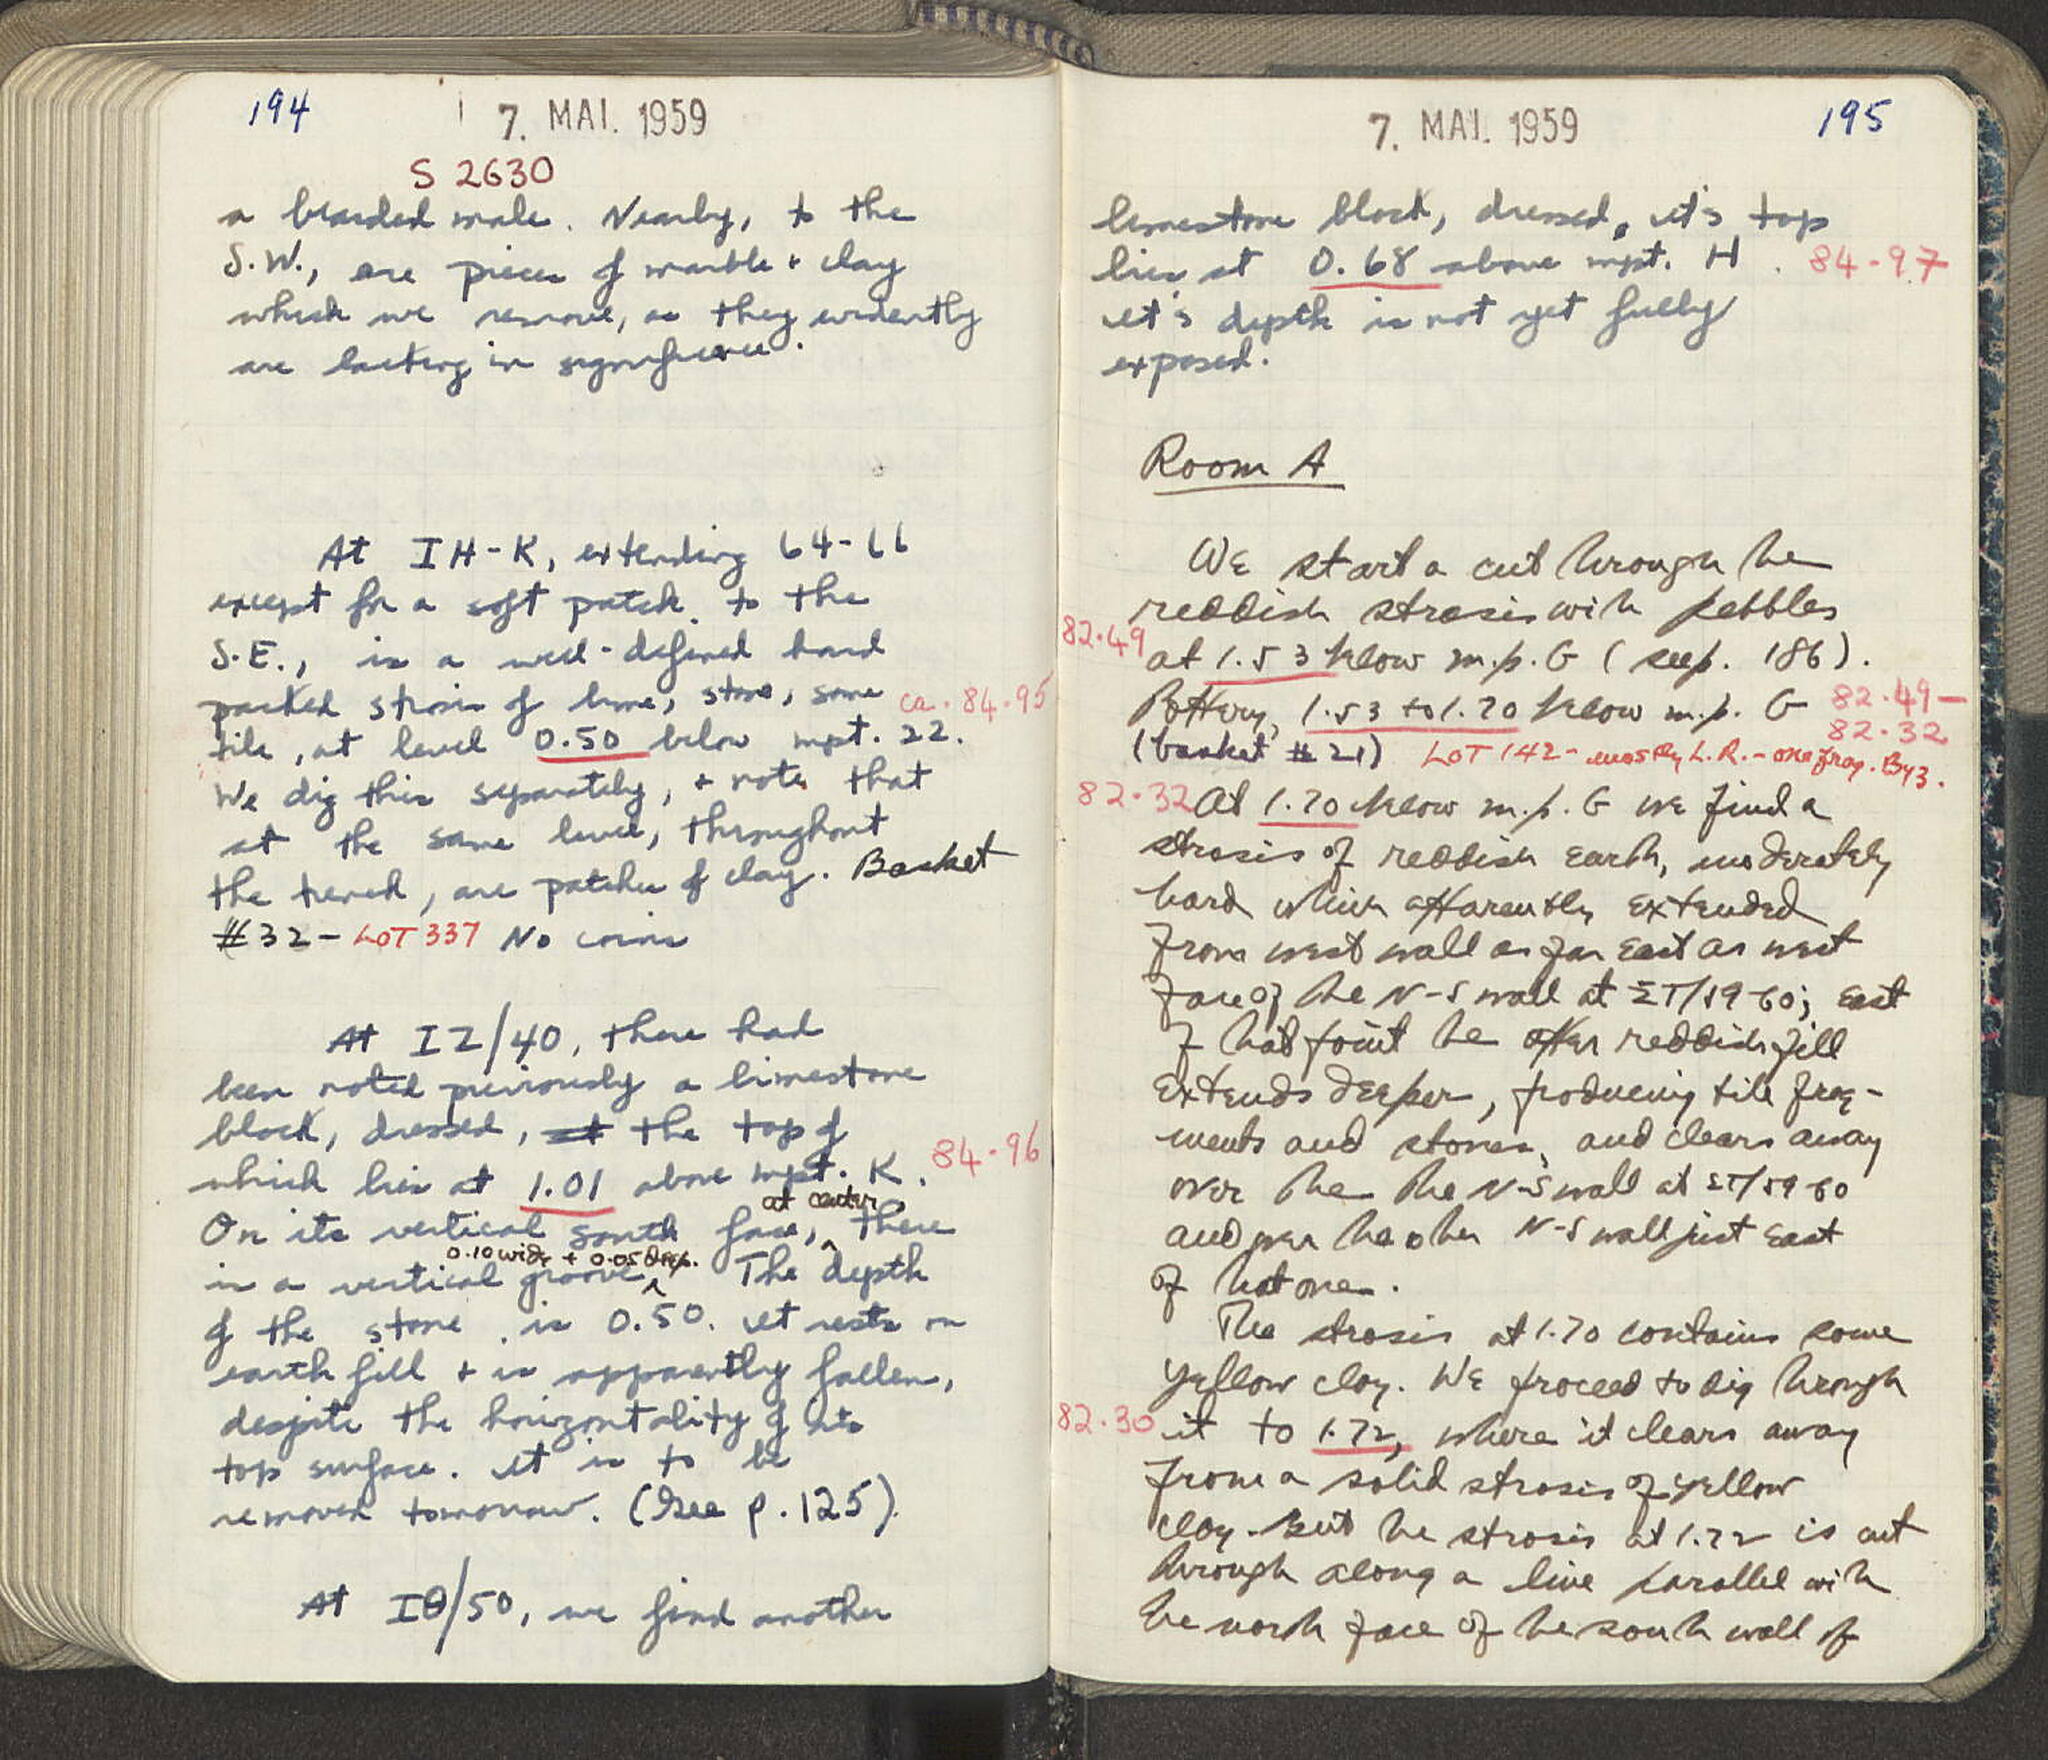 194
7. MAI. 1959
S 2630
a bearded male. Nearby, to the
S.W., are pieces of marble + clay
which we remove, as they evidently
are lacking in significance.
At IH-K, extending 64-66
except for a soft patch to the
S.E., is a well-defined hard
packed strosis of lime, stone, some
ca. 84.95
tile, at level 0.50 below mpt. 22.
We dig this separately, + note that
at the same level, throughout
the trench, are patches of clay. Basket
#32 - LOT 337 No coins
At IZ/40, there had
been noted previously a limestone
block, dressed, at the top of
which lies at 1.01 above mpt. K.
84.96
at center
On its vertical south face, ^ there
0.10 wide + 0.05 deep.
is a vertical groove ^. The depth
of the stone is 0.50. It rests on
earth fill + is apparently fallen,
despite the horizontality of its
top surface. It is to be
removed tomorrow. (See p. 125).
At IΘ/50, we find another
7. MAI. 1959
195
limestone block, dressed, it's top
lies at 0.68 above mpt. H. 84.97
it's depth is not yet fully
exposed.
Room A
We start a cut through the
reddish strosis with pebbles
82.49
at 1.53 below m.p. G (see p. 186).
Pottery, 1.53 to 1.70 below m.p. G 82.49-
82.32
(basket #21) LOT 142 - mostly L.R. - one frag. Byz.
82.32 At 1.70 below m.p. G we find a
strosis of reddish earth, moderately
hard which apparently extended
from west wall as far east as west
face of the N-S wall at ΣΤ/59-60; east
of that point the other reddish fill
extends deeper, producing tile frag-
ments and stones, and clears away
over the the N-S wall at ΣΤ/59-60
and over the other N-S wall just east
of that one.
The strosis at 1.70 contains some
yellow clay. We proceed to dig through
82.30 it to 1.72, where it clears away
from a solid strosis of yellow
clay. But the strosis at 1.72 is cut
through along a line parallel with
the north face of the south wall of